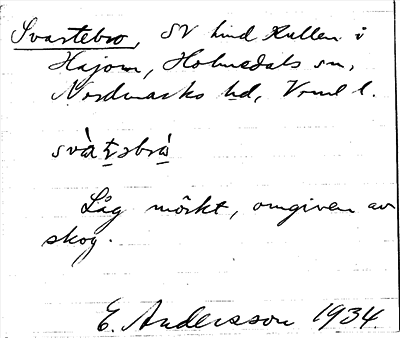 Svartebro, SV lind Kullen i
Hajom, Holmedals sn,
Nordmarks hd, Vrml l.
svàtəbrò
Låg mörkt, omgiven av
skog.
E. Andersson 1934.